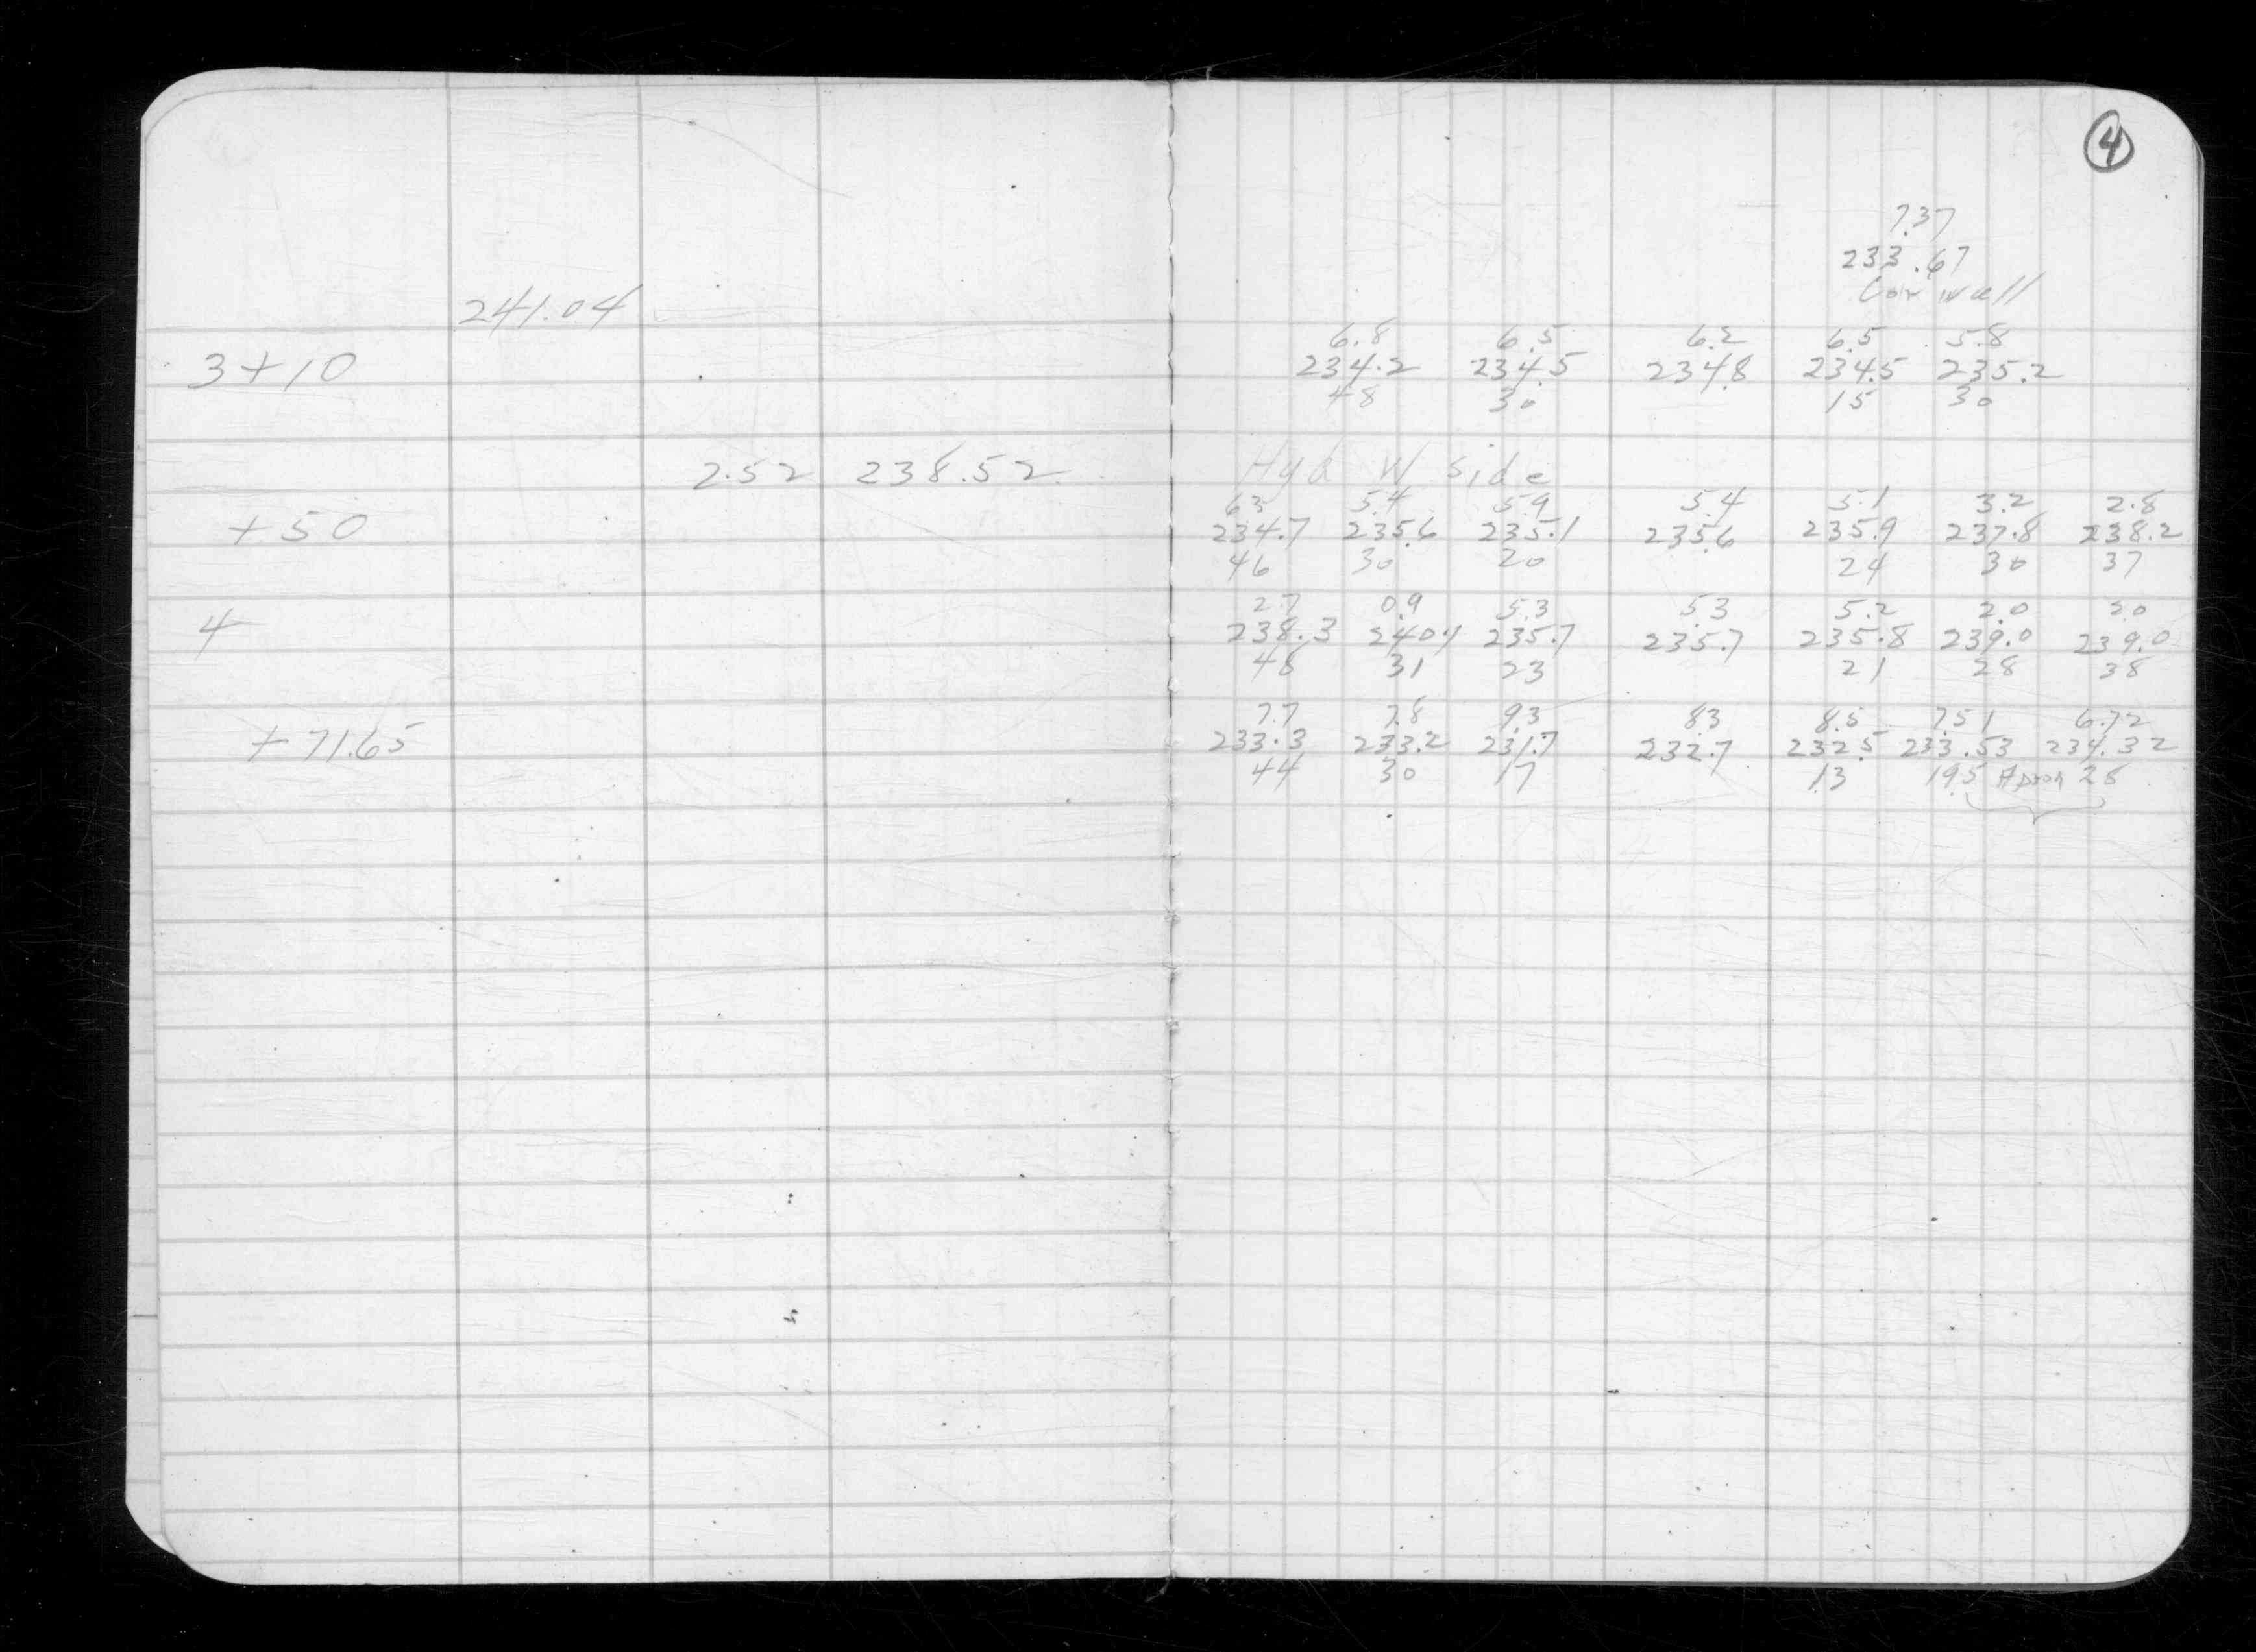 4
7.37
233.67
Cor wall
241.04
6.8 6.5 6.2 6.5 5.8
3+10 234.2 234.5 234.8 234.5 235.2
48 30 15 30
2.52 238.52 Hyd W side
6.3 5.4 5.9 5.4 5.1 3.2 2.8
+50 234.7 235.6 235.1 235.6 235.9 237.8 238.2
46 30 20 24 30 37
2.7 0.9 5.3 5.3 5.2 2.0 2.0
4 238.3 240.1 235.7 235.7 235.8 239.0 239.0
48 31 23 21 28 38
7.7 7.8 9.3 8.3 8.5 7.51 6.72
+71.65 233.3 233.2 231.7 232.7 232.5 233.53 234.32
44 30 17 13 19.5 Apron 28